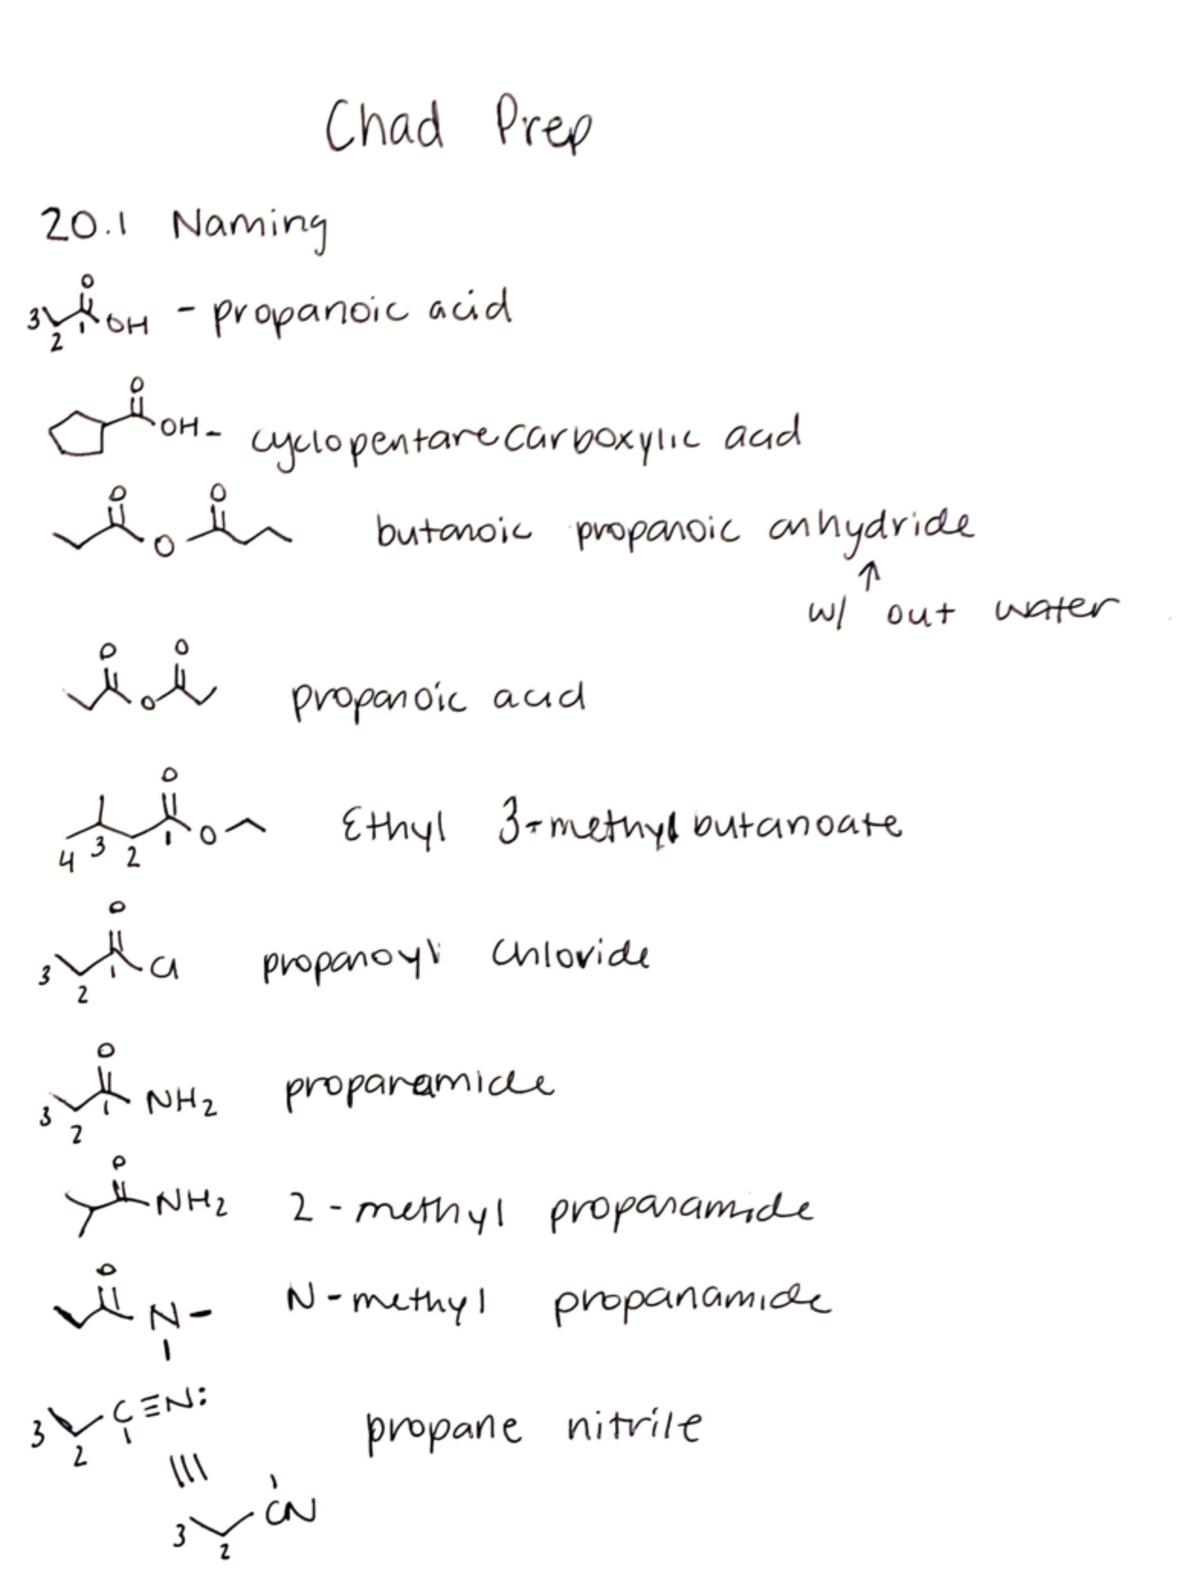 Chad Prep
20.1 Naming
O
3 2 1 OH - propanoic acid
O
OH - cyclopentanecarboxylic acid
O O
O butanoic propanoic anhydride
↑
w/ out water
O O
O propanoic acid
O
4 3 2 1 O Ethyl 3-methylbutanoate
O
3 2 1 Cl propanoyl chloride
O
3 2 1 NH2 propanamide
O
NH2 2-methyl propanamide
O
N N-methyl propanamide
3 2 1 C≡N: propane nitrile
≡
3 2 1 CN